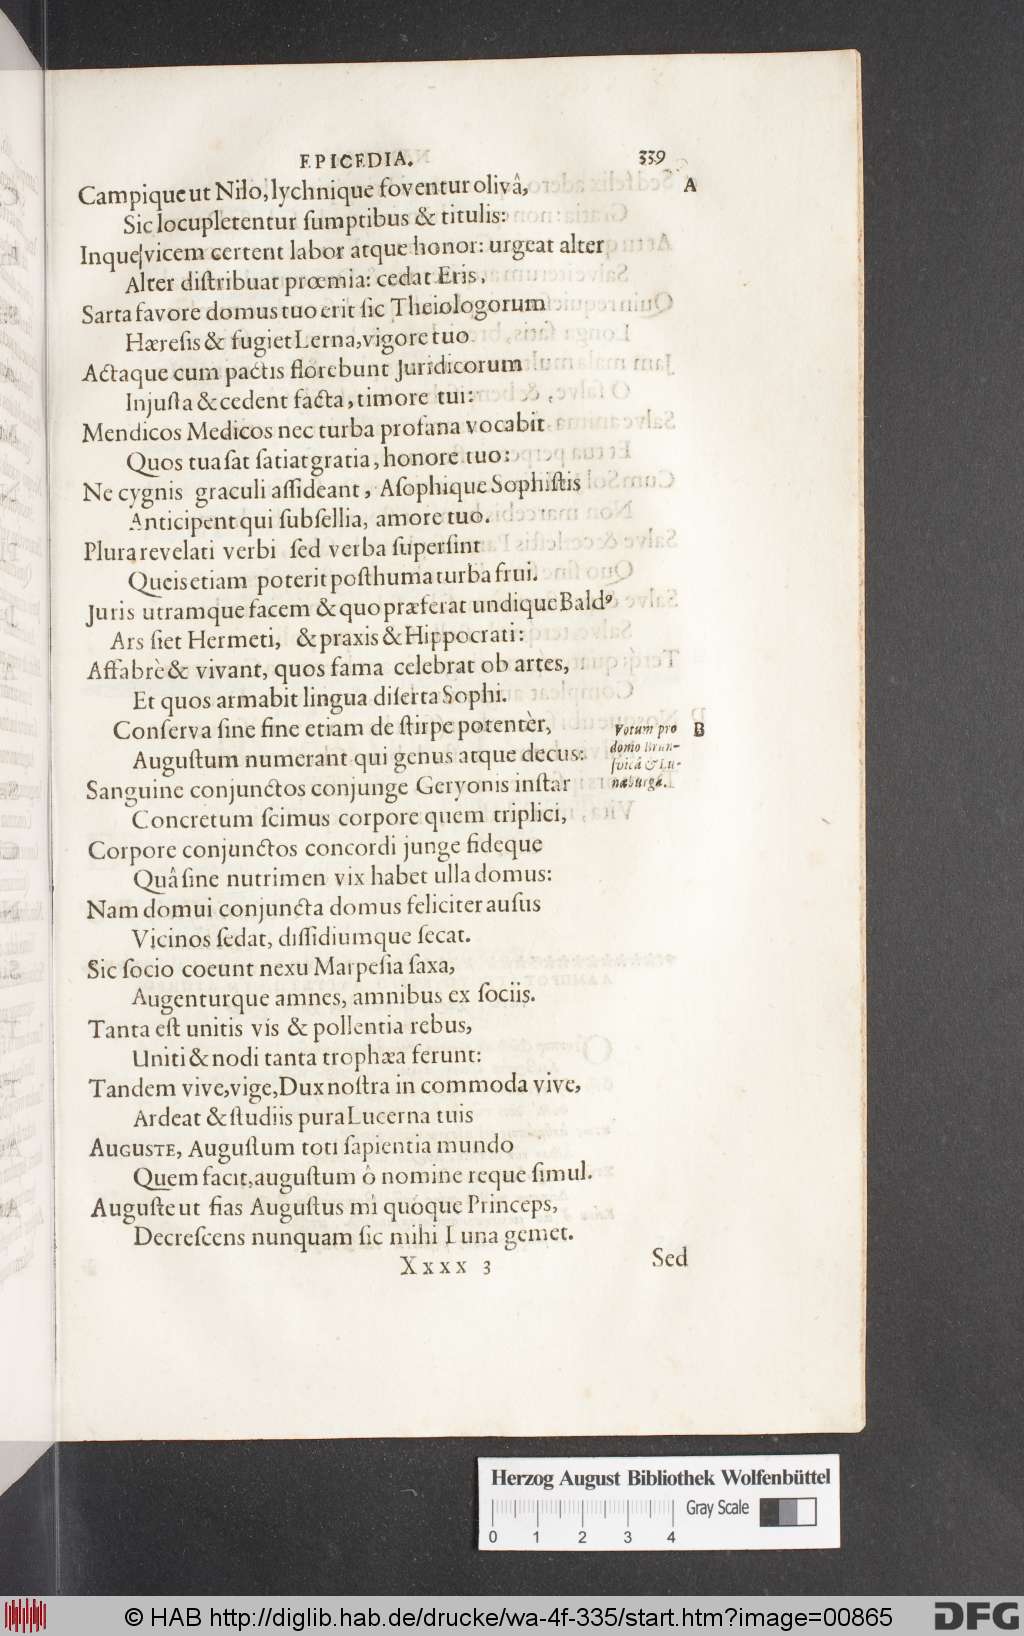 EPICEDIA. 339
Campique ut Nilo, lychnique foventur olivâ, A
Sic locupletentur ſumptibus & titulis:
Inque vicem certent labor atque honor: urgeat alter
Alter diſtribuat prœmia: cedat Eris,
Sarta favore domus tuo erit ſic Theiologorum
Hæreſis & fugiet Lerna, vigore tuo
Actaque cum pactis florebunt Juridicorum
Injuſta & cedent facta, timore tui:
Mendicos Medicos nec turba profana vocabit
Quos tua ſat ſatiat gratia, honore tuo:
Ne cygnis graculi aſſideant, Aſophique Sophiſtis
Anticipent qui ſubſellia, amore tuo.
Plura revelati verbi ſed verba ſuperſint
Queis etiam poterit poſthuma turba frui.
Juris utramque facem & quo præferat undique Baldꝰ
Ars ſiet Hermeti, & praxis & Hippocrati:
Affabrè & vivant, quos fama celebrat ob artes,
Et quos armabit lingua diſerta Sophi.
Conſerva ſine fine etiam de ſtirpe potentèr, Votum pro B
Auguſtum numerant qui genus atque decus: domo Brun-
ſvicâ & Lu-
Sanguine conjunctos conjunge Geryonis inſtar næburgâ.
Concretum ſcimus corpore quem triplici,
Corpore conjunctos concordi junge fideque
Quâ ſine nutrimen vix habet ulla domus:
Nam domui conjuncta domus feliciter auſus
Vicinos ſedat, diſſidiumque ſecat.
Sic ſocio coeunt nexu Marpeſia ſaxa,
Augenturque amnes, amnibus ex ſociis.
Tanta eſt unitis vis & pollentia rebus,
Uniti & nodi tanta trophæa ferunt:
Tandem vive, vige, Dux noſtra in commoda vive,
Ardeat & ſtudiis pura Lucerna tuis
AUGUSTE, Auguſtum toti ſapientia mundo
Quem facit, auguſtum ô nomine reque ſimul.
Auguſte ut fias Auguſtus mî quóque Princeps,
Decreſcens nunquam ſic mihi Luna gemet.
Xxxx 3 Sed
Herzog August Bibliothek Wolfenbüttel
Gray Scale
0 1 2 3 4
© HAB http://diglib.hab.de/drucke/wa-4f-335/start.htm?image=00865 DFG